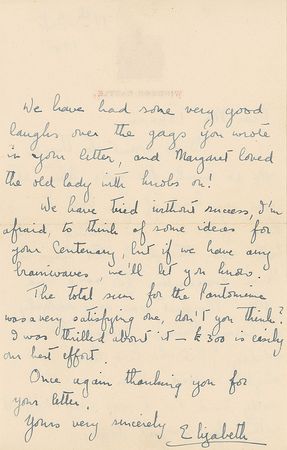 WINDSOR CASTLE.
We have had some very good
laughs over the gags you wrote
in your letter, and Margaret loved
the old lady with knobs on!
We have tried without success, I'm
afraid, to think of some ideas for
your Centenary, but if we have any
brainwaves, we'll let you know.
The total sum for the Pantomime
was a very satisfying one, don't you think?
I was thrilled about it – £300 is easily
our best effort.
Once again thanking you for
your letter.
Yours very sincerely
Elizabeth